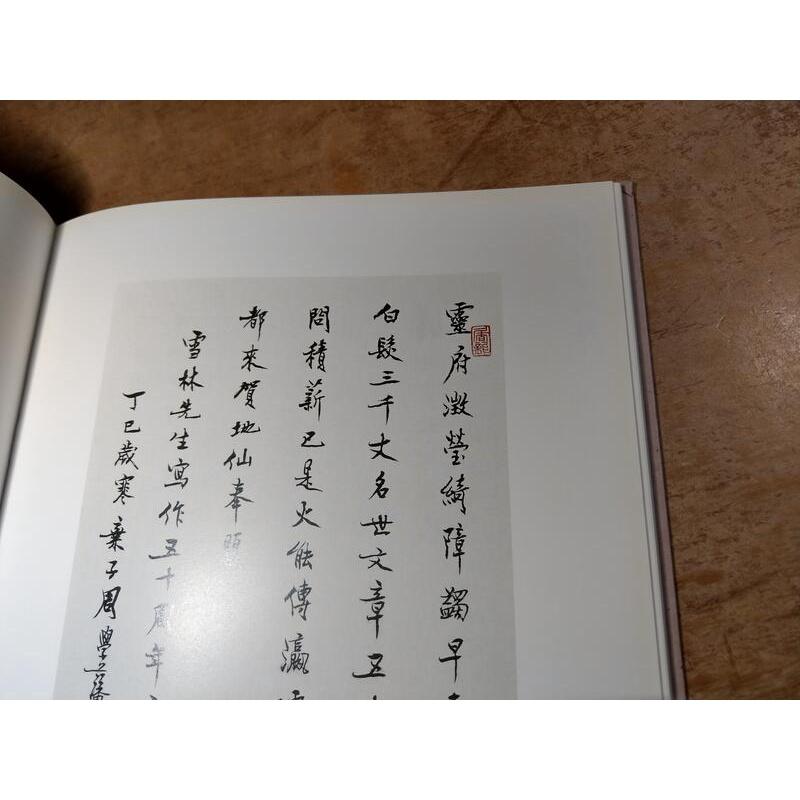 靈府澂瑩綺障蠲早
白髮三千丈名世文章五
問積薪已是火能傳瀛
都來賀地仙奉
雪林先生寫作五十周年
丁巳歲寒棄子周學藩